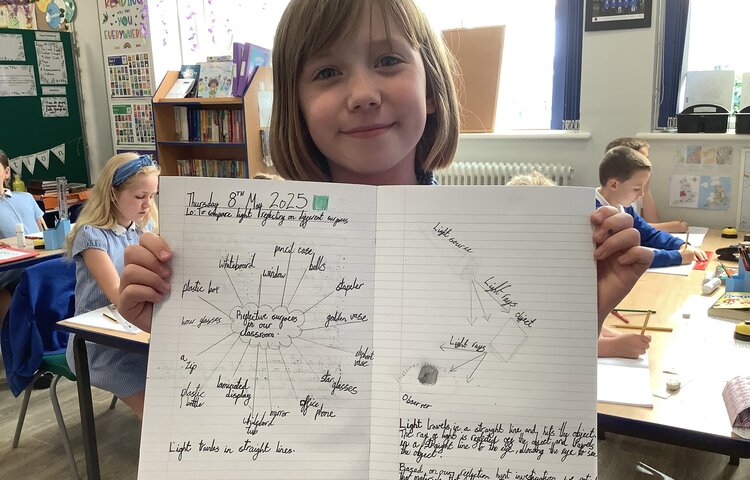 READING
EVERYWHERE
Thursday 8TH May 2025
Lo: To compare light reflecting on different
pencil case
whiteboard
window
balls
plastic box
stapeler
hour glasses
Reflective surfaces
in our
classroom
golden vase
a
zip
star
glasses
plastic
bottle
laminated
display
mirror
office
phone
Light travles in straight lines.
Light source
Light rays
object
Light rays
Observer
Light travels in a straight line and hits the object.
The ray of light is reflected off the object and travels
in a straight line to the eye, allowing the eye to see
the object.
Based on our reflection hunt investigation,